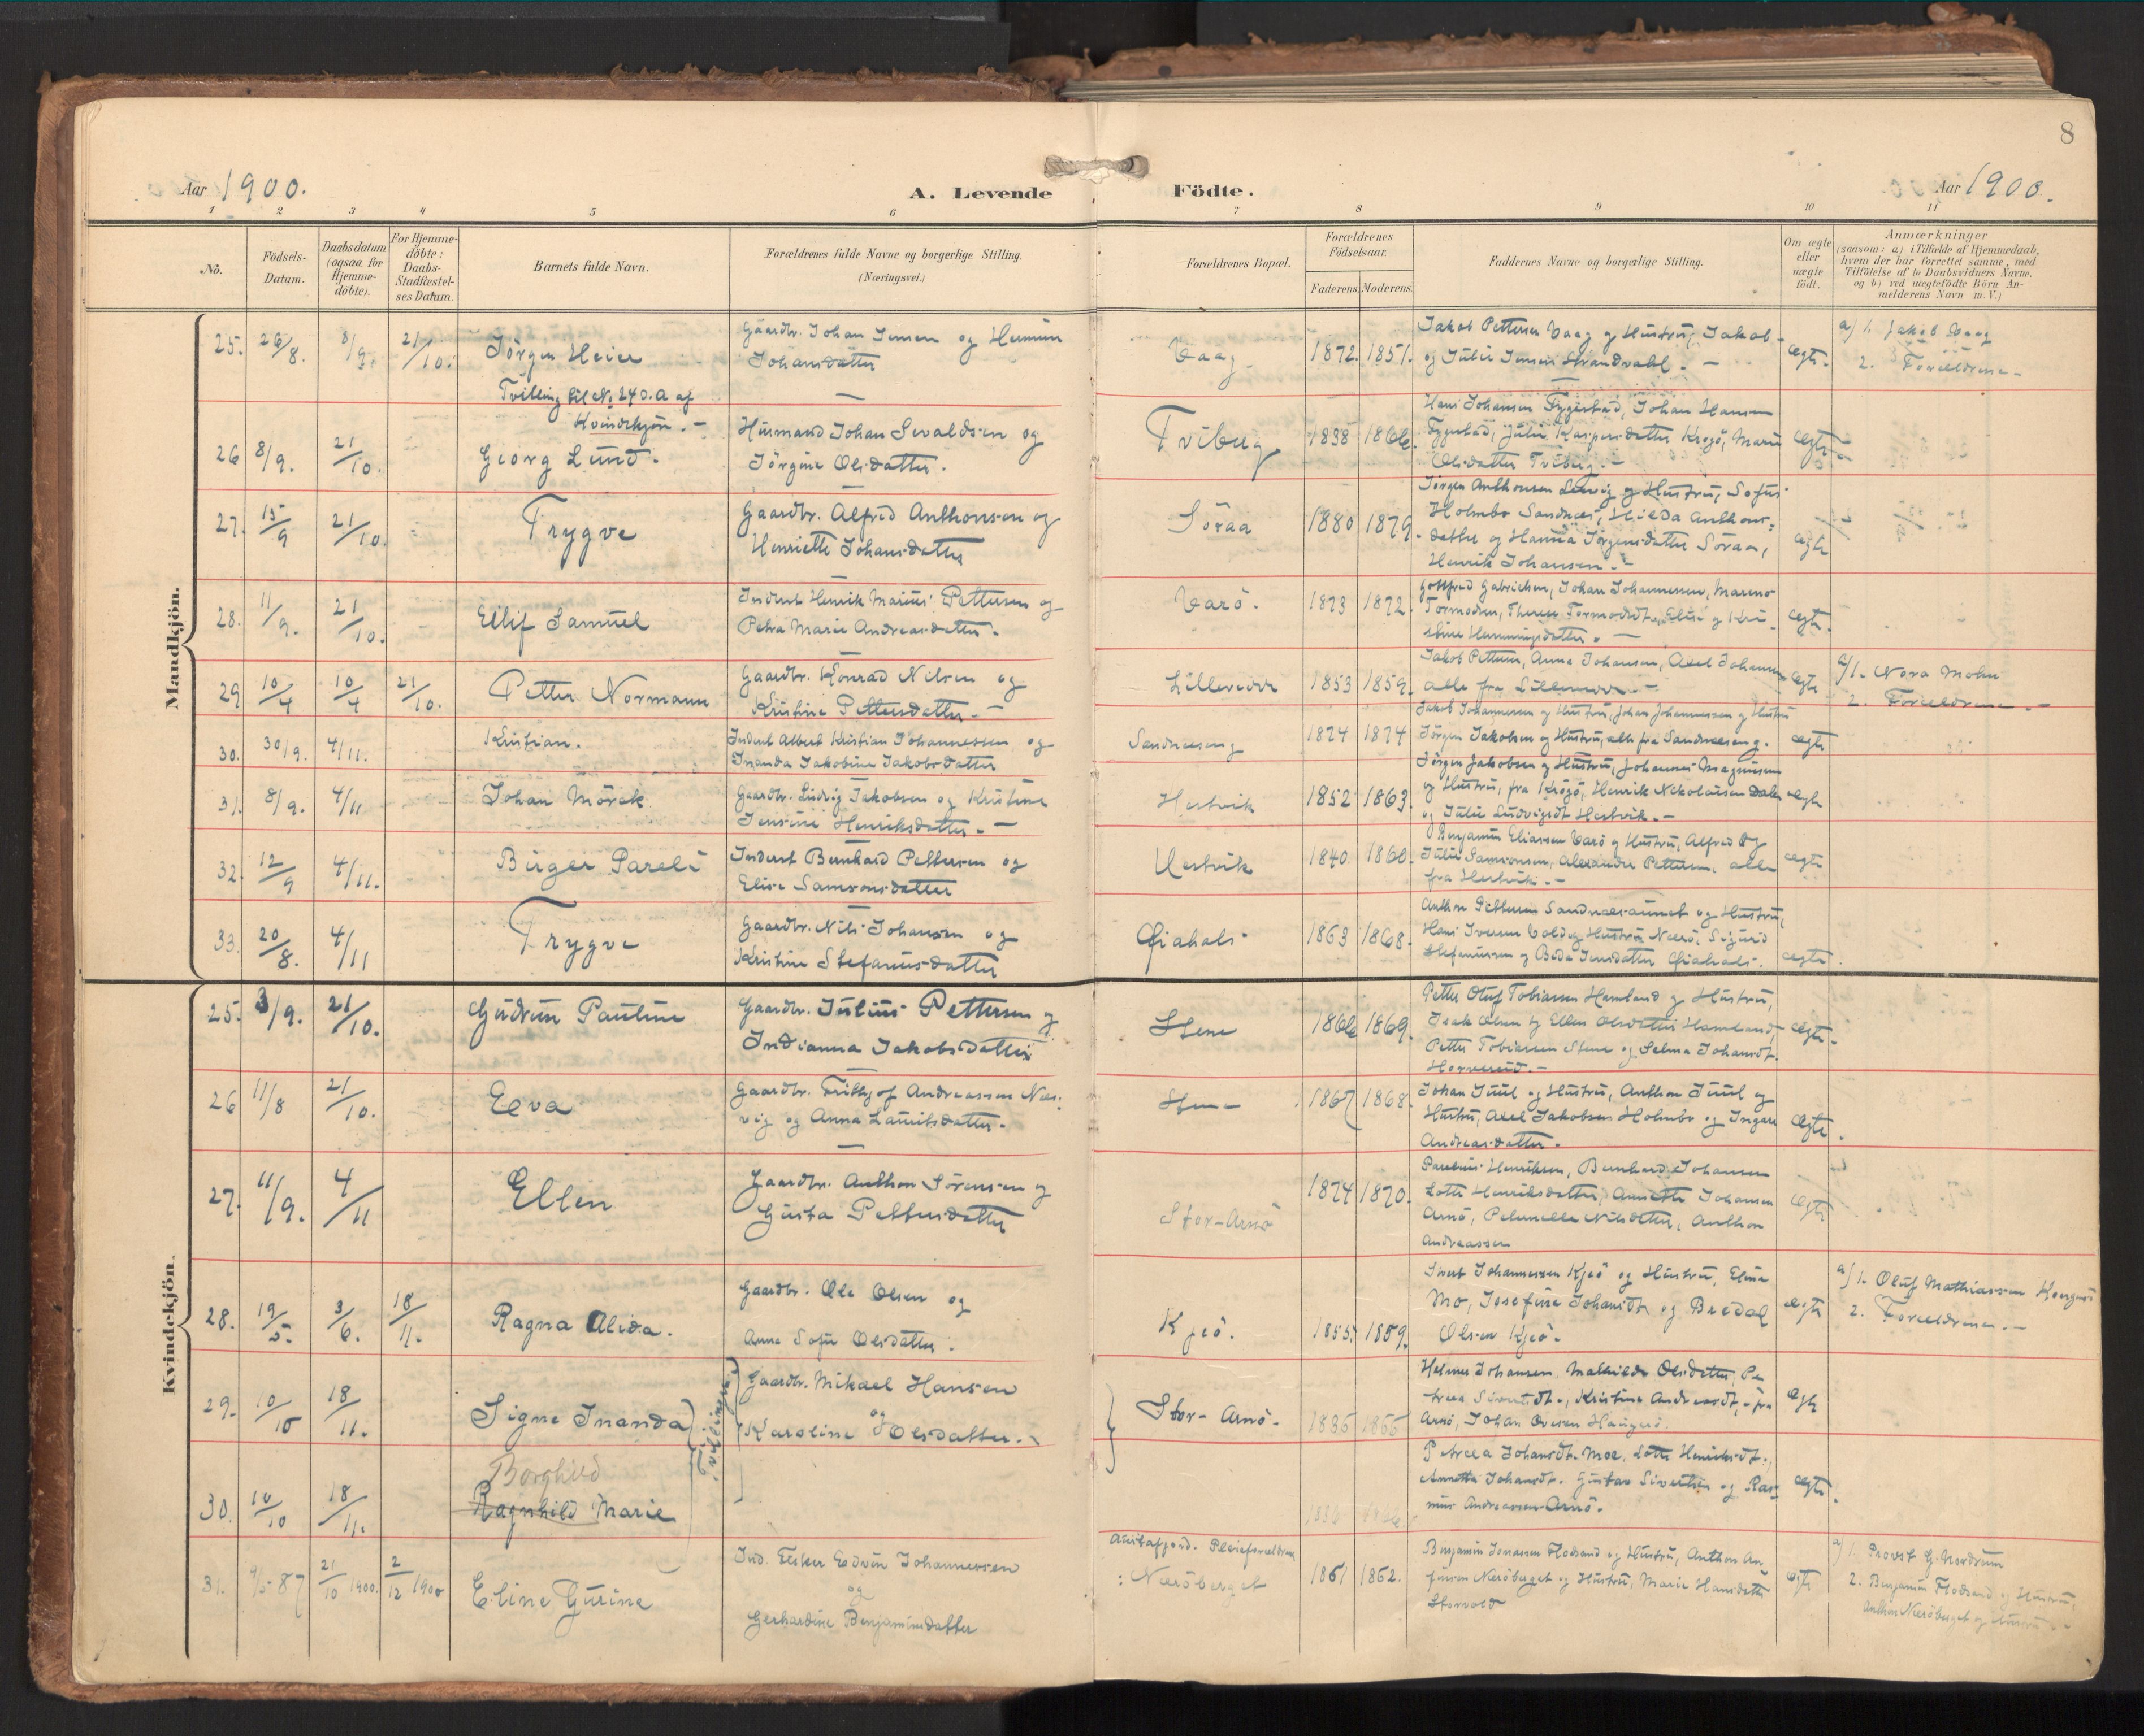 8
Aar 1900.
A. Levende Födte.
Aar 1900.
1 2 3 4 5 6 7 8 9 10 11
No.
Födsels-
Datum.
Daabsdatum
(ogsaa for
Hjemme-
döbte).
For Hjemme-
döbte:
Daabs-
Stadfestel-
ses Datum.
Barnets fulde Navn.
Forældrenes fulde Navne og borgerlige Stilling.
(Næringsvei.)
Forældrenes Bopæl.
Forældrenes
Födselsaar.
Faderens. Moderens.
Faddernes Navne og borgerlige Stilling.
Om ægte
eller
uægte
födt.
Anmærkninger
(saasom: a) i Tilfælde af Hjemmedaab,
hvem der har forrettet samme, med
Tilföielse af to Daabsvidners Navne.
og b) ved uægtefödte Börn An-
melderens Navn m. V.)
Mandkjön.
25. 26/8. 8/9. 21/10. Jörgen Heier
Tvilling til No 24 D. a af
Kvindekjön. -
Gaardbr. Johan Jensen og
Johansdatter
Vaag 1872. 1851.
Jakob Pettersen Vaag og Hustru, Jakob
og Julie Jensen Strandvahl. -
ægte.
a/ 1. Jakob Vaag
2. Forældrene -
26 8/9. 21/10. Georg Lund.
Husmand Johan Sevaldsen og
Jörgine Olsdatter.
Tviberg 1838 1866.
Hans Johansen Fygestad, Johan Hansen
Fygestad, Julie Kaspersdatter Krogö, Marie
Olsdatter Tviberg. -
ægte
27. 15/9 21/10. Trygve
Gaardbr. Alfred Anthonsen og
Henriette Johansdatter
Söraa 1880 1879.
Jörgen Anthonsen og Hustru, Sofus
Holmbo Sandnæs, Hilda Anthons-
datter og Hanna Jörgensdatter Söraa,
Henrik Johansen. -
ægte
28. 11/9. 21/10. Eilif Samuel
Inderst Henrik Marius Pettersen og
Petra Marie Andreasdatter.
Varö. 1873 1872.
Gottfred Gabrielsen, Johan Johannessen,
Tormodsen, Therese Tormodsdt., Elise og Kri-
stine Hemmingsdatter. -
ægte.
29 10/4 10/4 21/10. Petter Normann
Gaardbr. Konrad Nilsen og
Kristine Pettersdatter. -
1853 1859.
Jakob Pettersen, Anna Johansen, Axel Johansen
alle fra
ægte
a/ 1. Nora Mohn
2. Forældrene. -
30. 30/9. 4/11. Kristian.
Inderst Albert Kristian Johannessen og
Inanda Jakobine Jakobsdatter
Sandnæseng 1874 1874
Jakob Johannessen og Hustru, Johan Johannessen og Hustru
Jörgen Jakobsen og Hustru, alle fra Sandnæseng.
ægte
31. 8/9. 4/11 Johan Mörck
Gaardbr. Ludvig Jakobsen og Kristine
Jensine Henriksdatter. -
Hestvik 1852 1863.
Jörgen Jakobsen og Hustru, Johannes Magnussen
og Hustru, fra Krogö, Henrik Nikolaisen Dale
og Julie Ludvigsdt Hestvik. -
ægte
32. 12/9 4/11. Birger Pareli
Inderst Bernhard Pettersen og
Elise Samsonsdatter
Hestvik 1840. 1860.
Benjamin Eliassen Varö og Hustru, Alfred og
Julie Samsonsen, Alexander Pettersen, alle
fra Hestvik. -
ægte
33. 20/8. 4/11 Trygve
Gaardbr. Nils Johansen og
Kristine Stefanusdatter
1863 1868.
Anthon Pettersen Sandnæsaunet og Hustru,
Hans Iversen Vold og Hustru Nærö, Sigurd
Stefanussen og Beda Jensdatter
ægte.
Kvindekjön.
25. 3/9. 21/10. Gudrun Pauline
Gaardbr. Julius Pettersen og
Indianna Jakobsdatter
Stene 1866 1869.
Petter Oluf Tobiassen Hamland og Hustru,
Isak Olsen og Ellen Olsdatter Hamland,
Petter Tobiassen Stene og Selma Johansdt.
ægte.
26 11/8 21/10. Eeva
Gaardbr. Frithjof Andreassen Næs-
vig og Anna Lauritsdatter.
1867 1868.
Johan Juul og Hustru, Anthon Juul og
Hustru, Axel Jakobsen Holmbo og
Andreasdatter.
ægte.
27. 11/9. 4/11 Ellen
Gaardbr. Anthon Sörensen og
Gusta Pettersdatter
Stor-Arnö 1874 1870.
Parelius Henriksen, Bernhard Johansen
Lotte Henriksdatter, Annette Johansen
Arnö, Petrnelle Nilsdatter, Anthon
Andreassen
ægte
28. 19/5. 3/6. 18/11. Ragna Alida.
Gaardbr. Ole Olsen og
Anna Sofie Olsdatter.
Kjeö. 1855. 1859.
Sivert Johannessen Kjeö og Hustru, Elina
Mo, Josefine Johansdt og Bredal
Olsen Kjeö.
ægte
a/ 1. Oluf Mathiassen
2. Forældrene. -
29. 10/10 18/11. Signe Inanda
Tvillinger
Gaardbr. Mikael Hansen
og
Karoline Olsdatter.
Stor-Arnö. 1835 1855
Helmer Johansen, Mathilde Olsdatter, Pe-
trea Sivertsdt., Kristine Andreasdt, fra
Arnö, Johan Ovesen
ægte
30. 10/10 18/11. Borghild
Ragnhild Marie
Petrea Johansdt. Moe, Lotte Henriksdt.,
Annetta Johansdt. Gustav Sivertsen og Ras-
mus Andreassen Arnö.
ægte.
31. 9/5 87 21/10 1900. 2/12 1900 Eline Gurine
Ind. Edvin Johannessen
og
Gerhardine Benjaminsdatter
Pleieforældrene
: Næröberget 1861 1862.
Benjamin Jonassen Flosand og Hustru, Anthon An-
Næröberget og Hustru, Marie Hansdatter
Storvold
ægte
a/ 1. Provst G. Nordrum
2. Benjamin Flosand og Hustru,
Anthon Næröberget og Hustru. -